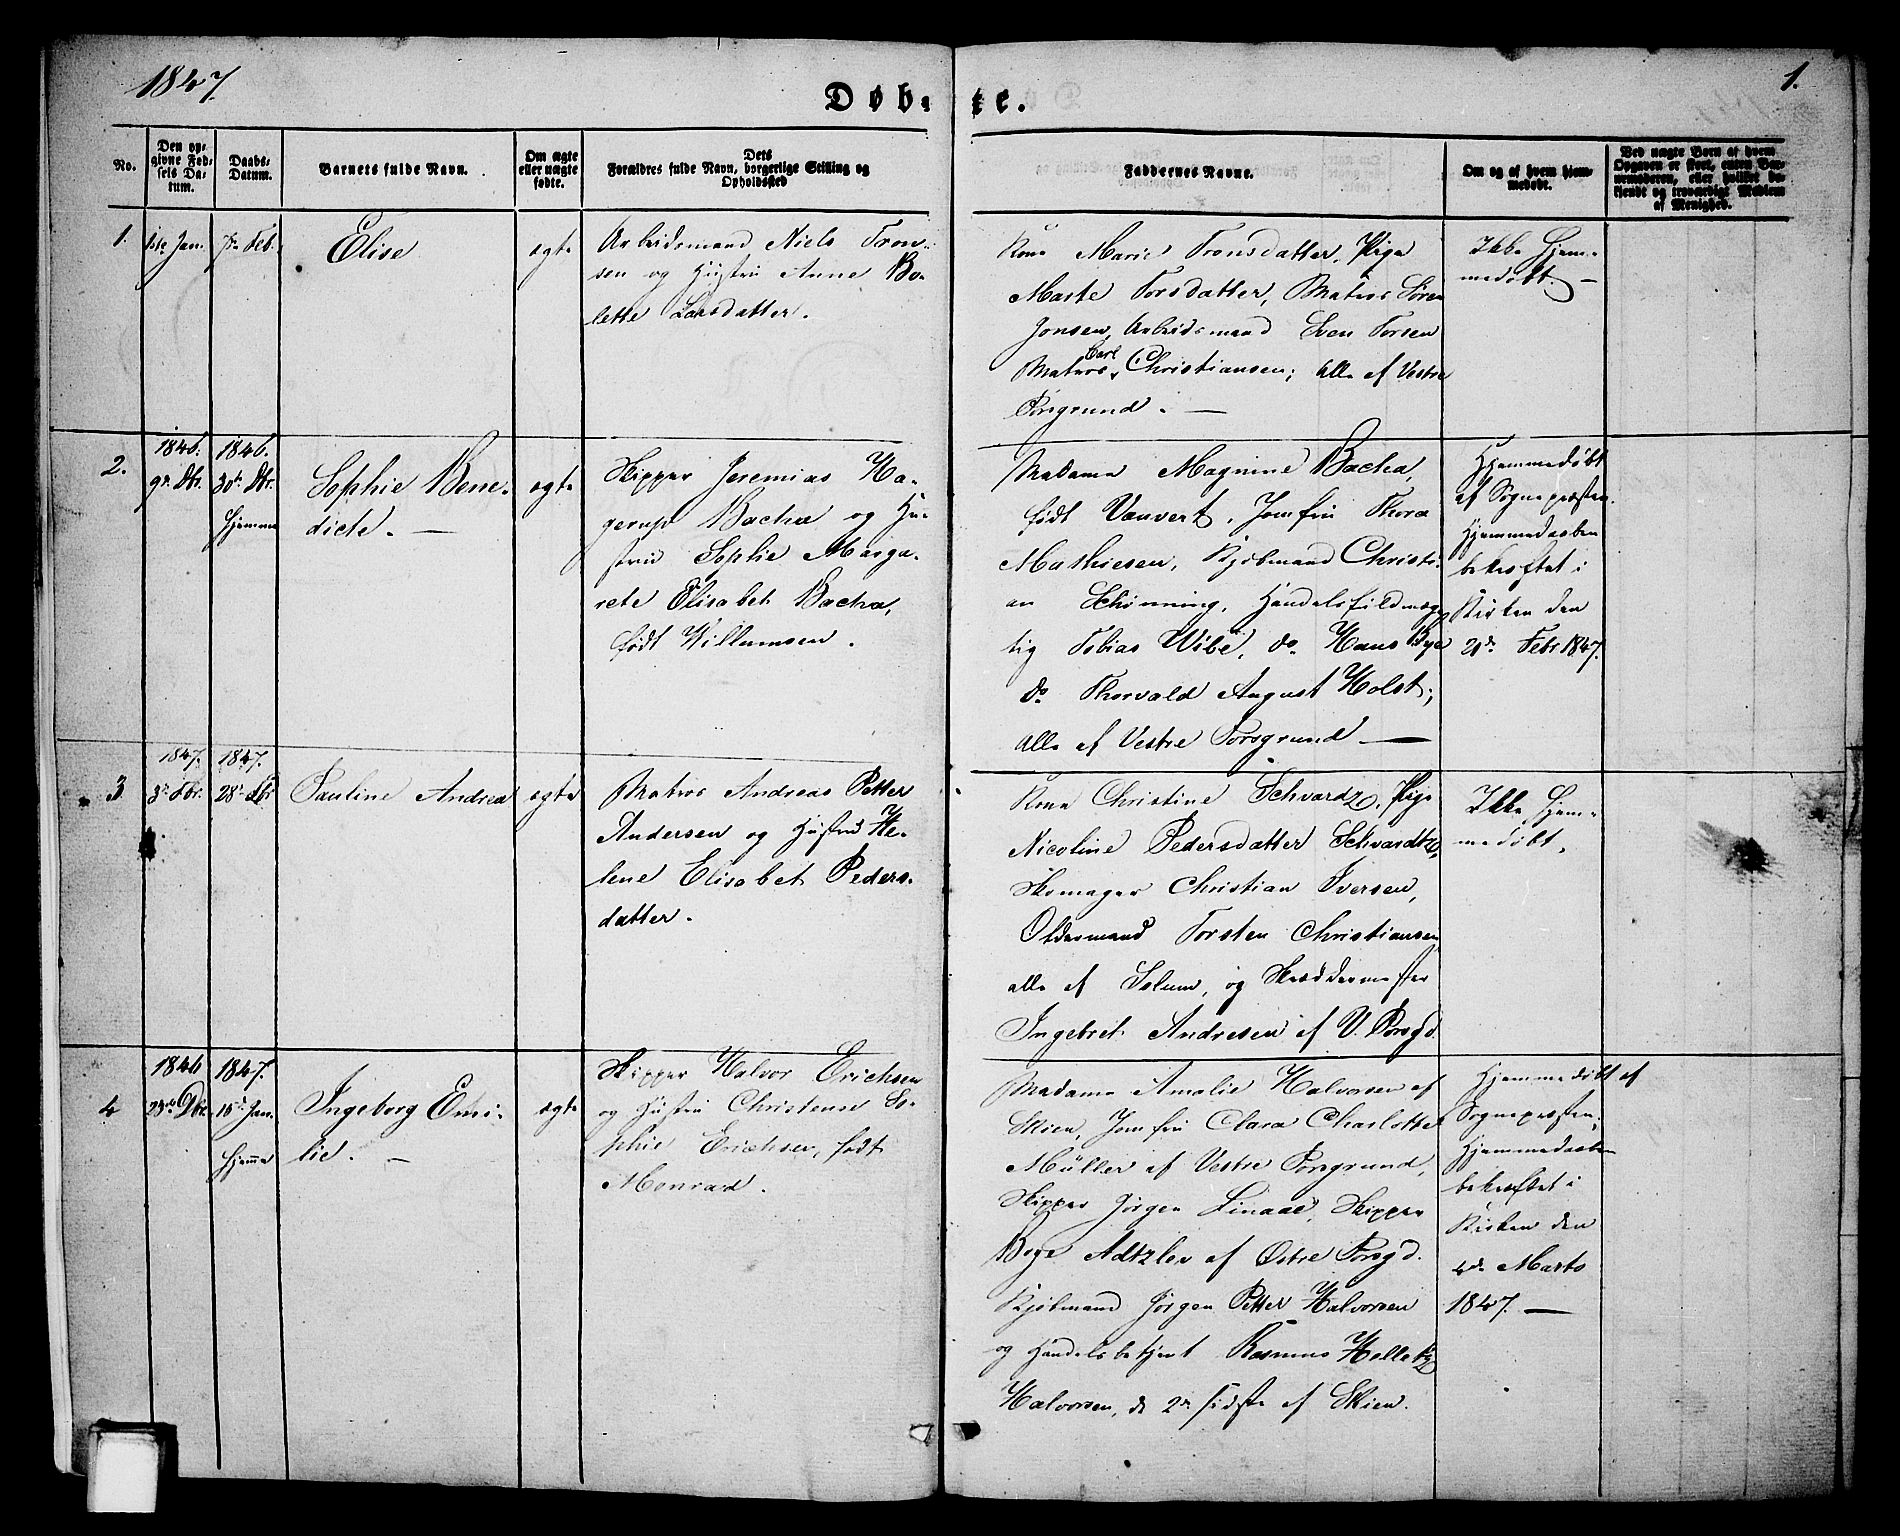 1847.
Døbte.
1.
No.
Den op-
givne Fød-
sels Da-
tum.
Daabs-
Datum.
Barnets fulde Navn.
Om ægte
eller uægte
fødte.
Dets
Forældres fulde Navn, borgerlige Stilling og
Opholdssted
Faddernes Navne.
Om og af hvem hjem-
medøbt.
Ved uægte Børn af hvem
Opgaven er skeet, enten Bar-
nemoderen, eller hvilket be-
kjendt og troværdigt Medlem
af Menighed.
1.
1ste Jan.
7de Feb.
Elise
ægte
Arbeidsmand Niels Tron-
sen og Hustru Anne Bo-
lette Larsdatter.
Kone Marie Tronsdatter, Pige
Marte Torsdatter, Matros Søren
Jonsen, Arbeidsmand Sven Torsen
Matros Carl Christiansen; Alle af Vestre
Porsgrund. —
Ikke Hjem-
medøbt. —
2.
1846.
9de Dbr.
1846.
30te Dbr.
Hjemme
Sophie Bene-
dicte. —
ægte
Skipper Jeremias Ha-
gerup Backa og Hu-
stru Sophie Marga-
rete Elisabet Backa,
født Willumsen.
Madame Magnine Backa,
født Vauvert, Jomfru Thora
Mathiesen, Kjøbmand Christi-
an Schønning, Handelsfuldmæg-
tig Tobias Wibe, do. Hans Bye
do Thorvald August Holst;
alle af Vestre Porsgrund —
Hjemmedøbt
af Sognepræsten.
Hjemmedaaben
bekræftet i
Kirken den
21de Febr 1847.
3
1847.
3de Fbr.
1847.
28de Fbr
Pauline Andrea
ægte
Matros Andreas Petter
Andersen og Hustru He-
lene Elisabet Peders-
datter.
Kone Christine Schvardz, Pige
Nicoline Pedersdatter Schvardtz,
Skomager Christian Iversen,
Oldermand Torsten Christiansen
alle af Solum, og Skræddermester
Ingebret Andresen af V. Porsgd.
Ikke Hjem-
medøbt.
4
1846
23de Dbr.
1847.
15de Jan.
Hjemme
Ingeborg Emi-
lie. —
ægte
Skipper Halvor Erichsen
og Hustru Christense So-
phie Erichsen, født
Monrad.
Madame Amalie Halvorsen af
Skien, Jomfru Clara Charlotte
Müller af Vestre Porsgrund,
Skipper Jørgen Linaae, Skipper
Boye Adtzlev af Østre Porsgd.
Kjøbmand Jørgen Petter Halvorsen
og Handelsbetjent Rasmus Helletz
Halvorsen, de 2de sidste af Skien.
Hjemmedøbt af
Sognepræsten;
Hjemmedaaben
bekræftet i
Kirken den
4de Marts
1847. —